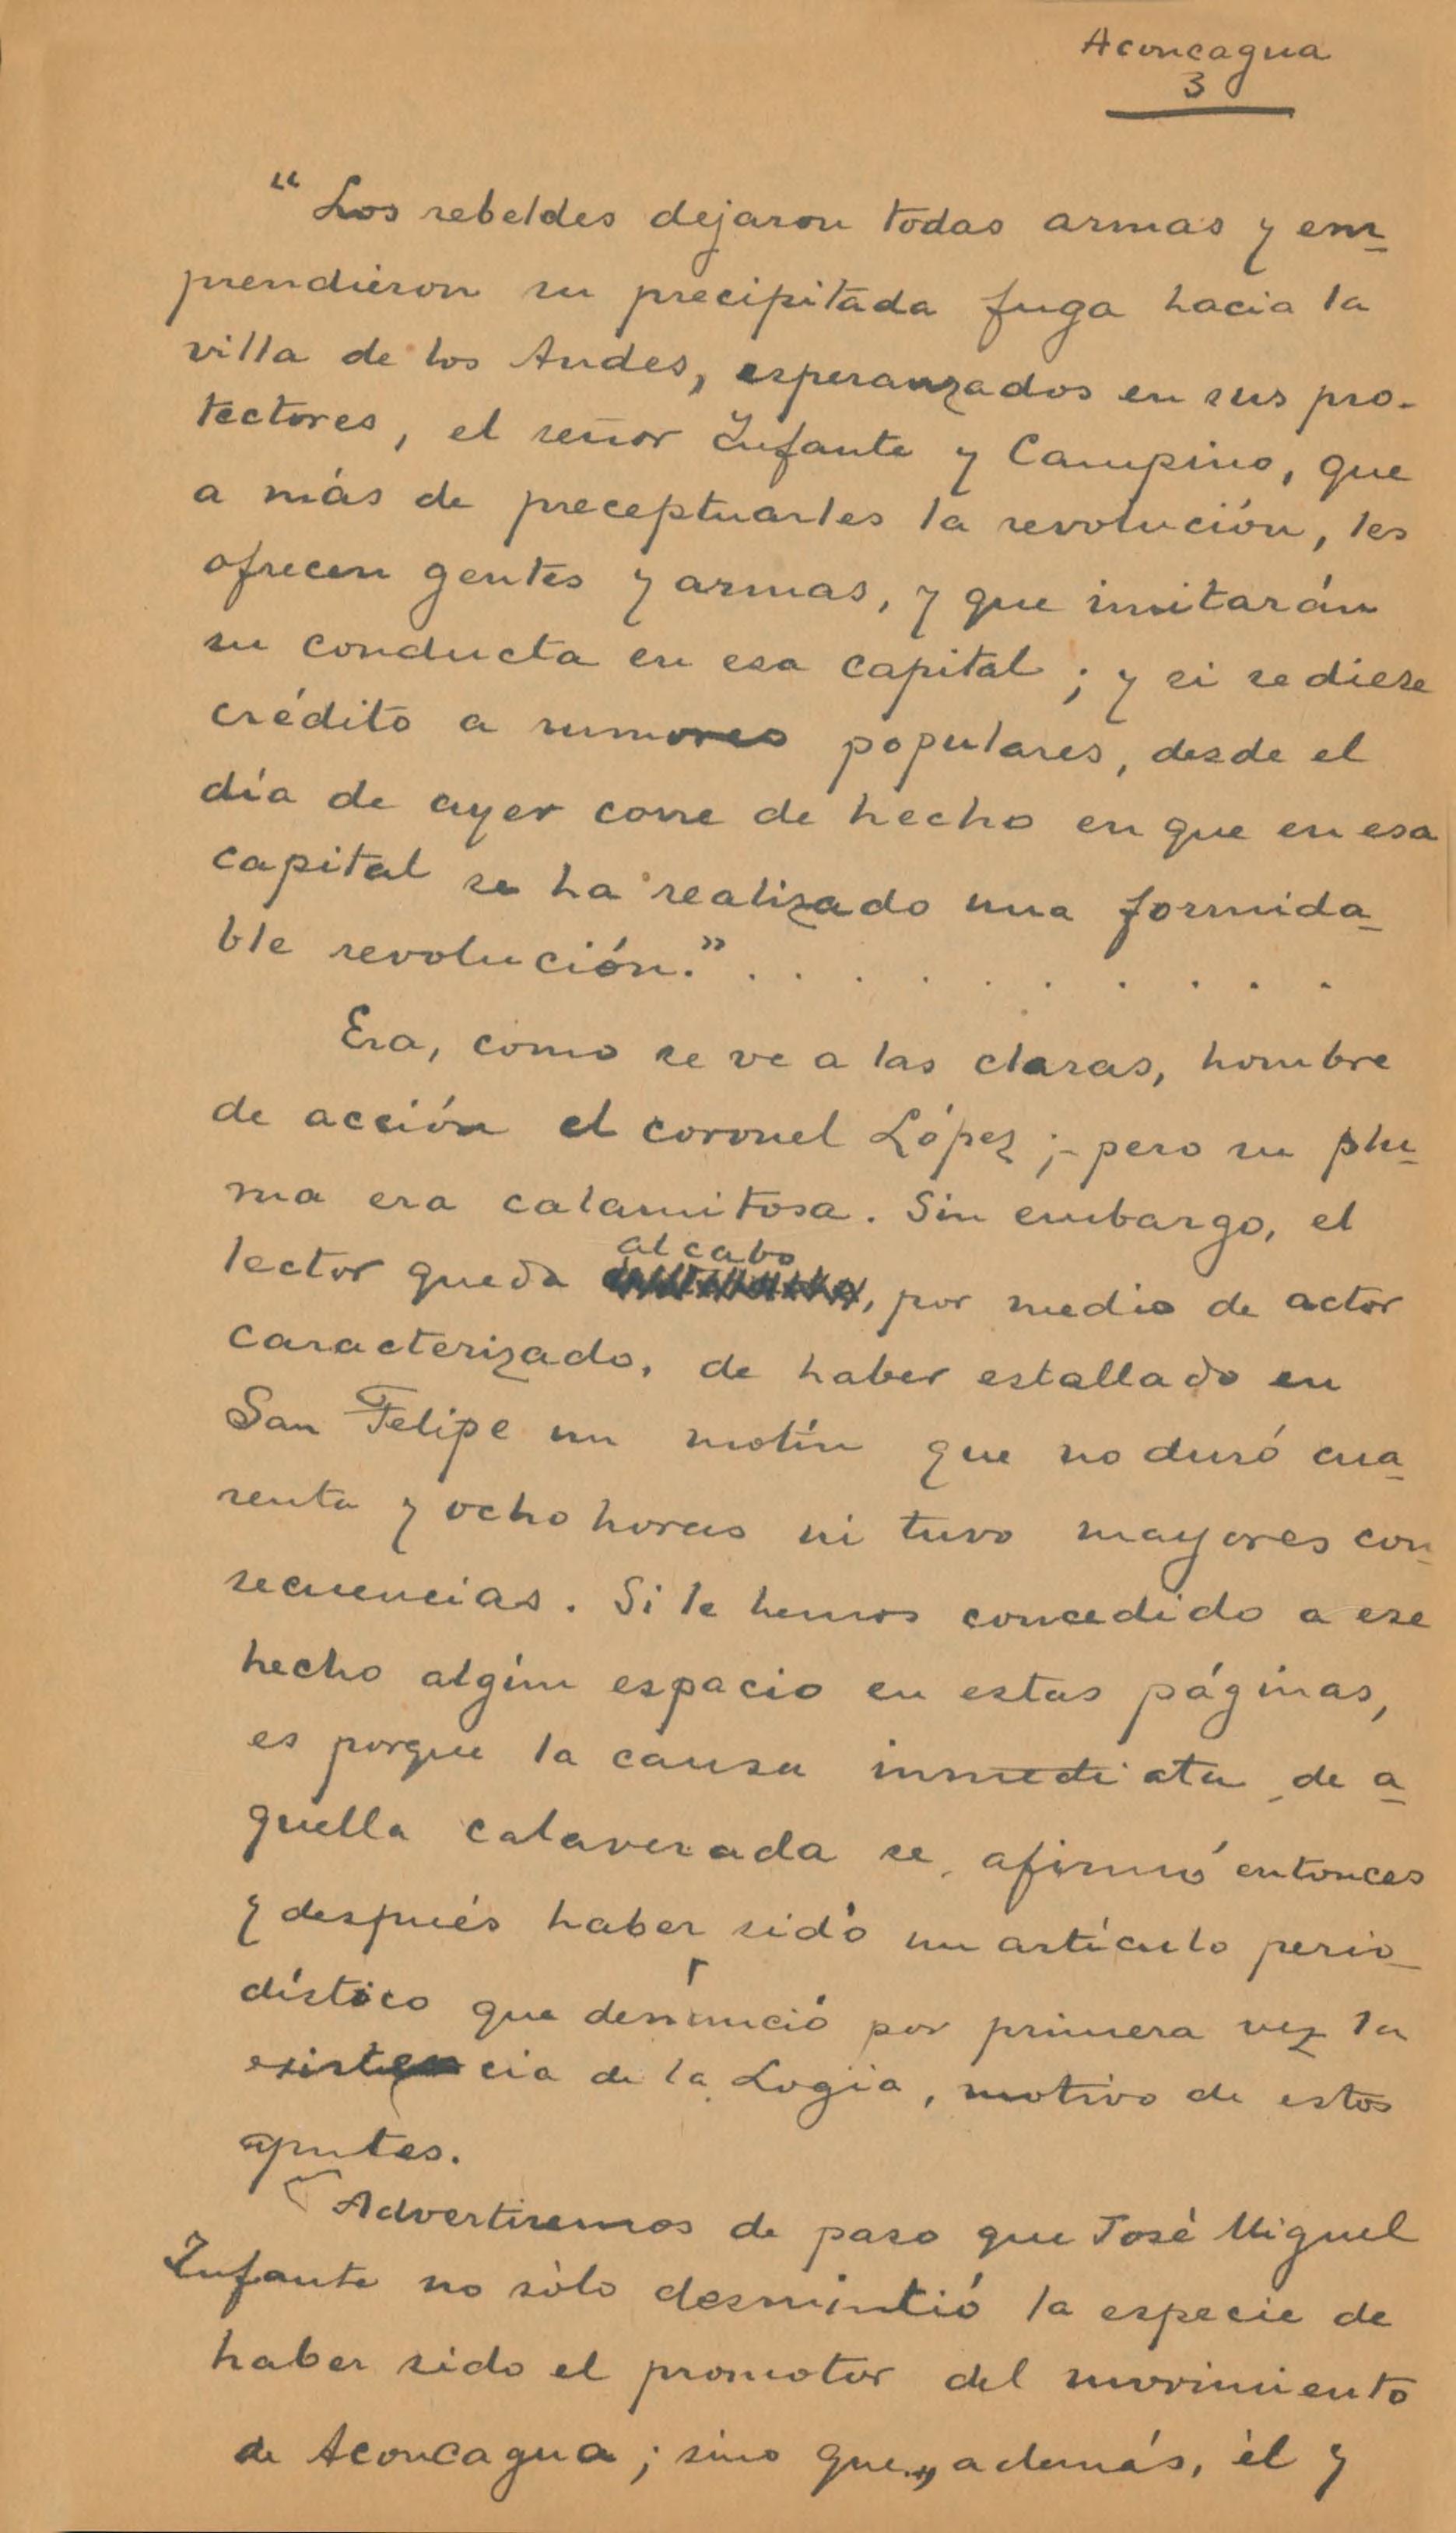 Aconcagua
3
“Los rebeldes dejaron todas armas y em-
prendieron su precipitada fuga hacia la
villa de los Andes, esperanzados en sus pro-
tectores, el señor Infante y Campino, que
a más de preceptuarles la revolución, les
ofrecen gentes y armas, y que imitarán
su conducta en esa capital; y si se diese
crédito a rumores populares, desde el
día de ayer corre de hecho en que en esa
capital se ha realizado una formida-
ble revolución.” . . . . . . . . . .
Era, como se ve a las claras, hombre
de acción el coronel López;- pero su plu-
ma era calamitosa. Sin embargo, el
al cabo
lector queda , por medio de actor
caracterizado, de haber estallado en
San Felipe un motín que no duró cua-
renta y ocho horas ni tuvo mayores con-
secuencias. Si le hemos concedido a ese
hecho algún espacio en estas páginas,
es porque la causa inmediata de a-
quella calaverada se afirmó entonces
y después haber sido un artículo perio-
dístico que denunció por primera vez la
existencia de la Logia, motivo de estos
apuntes.
Advertiremos de paso que José Miguel
Infante no sólo desmintió la especie de
haber sido el promotor del movimiento
de Aconcagua; sino que, además, él y